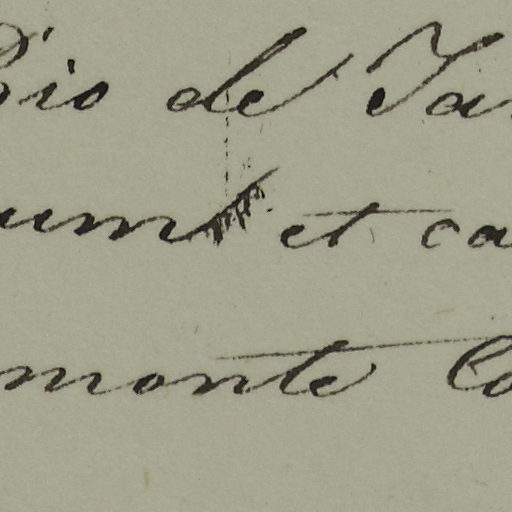 Rio de Ja
um et ca
monte Co